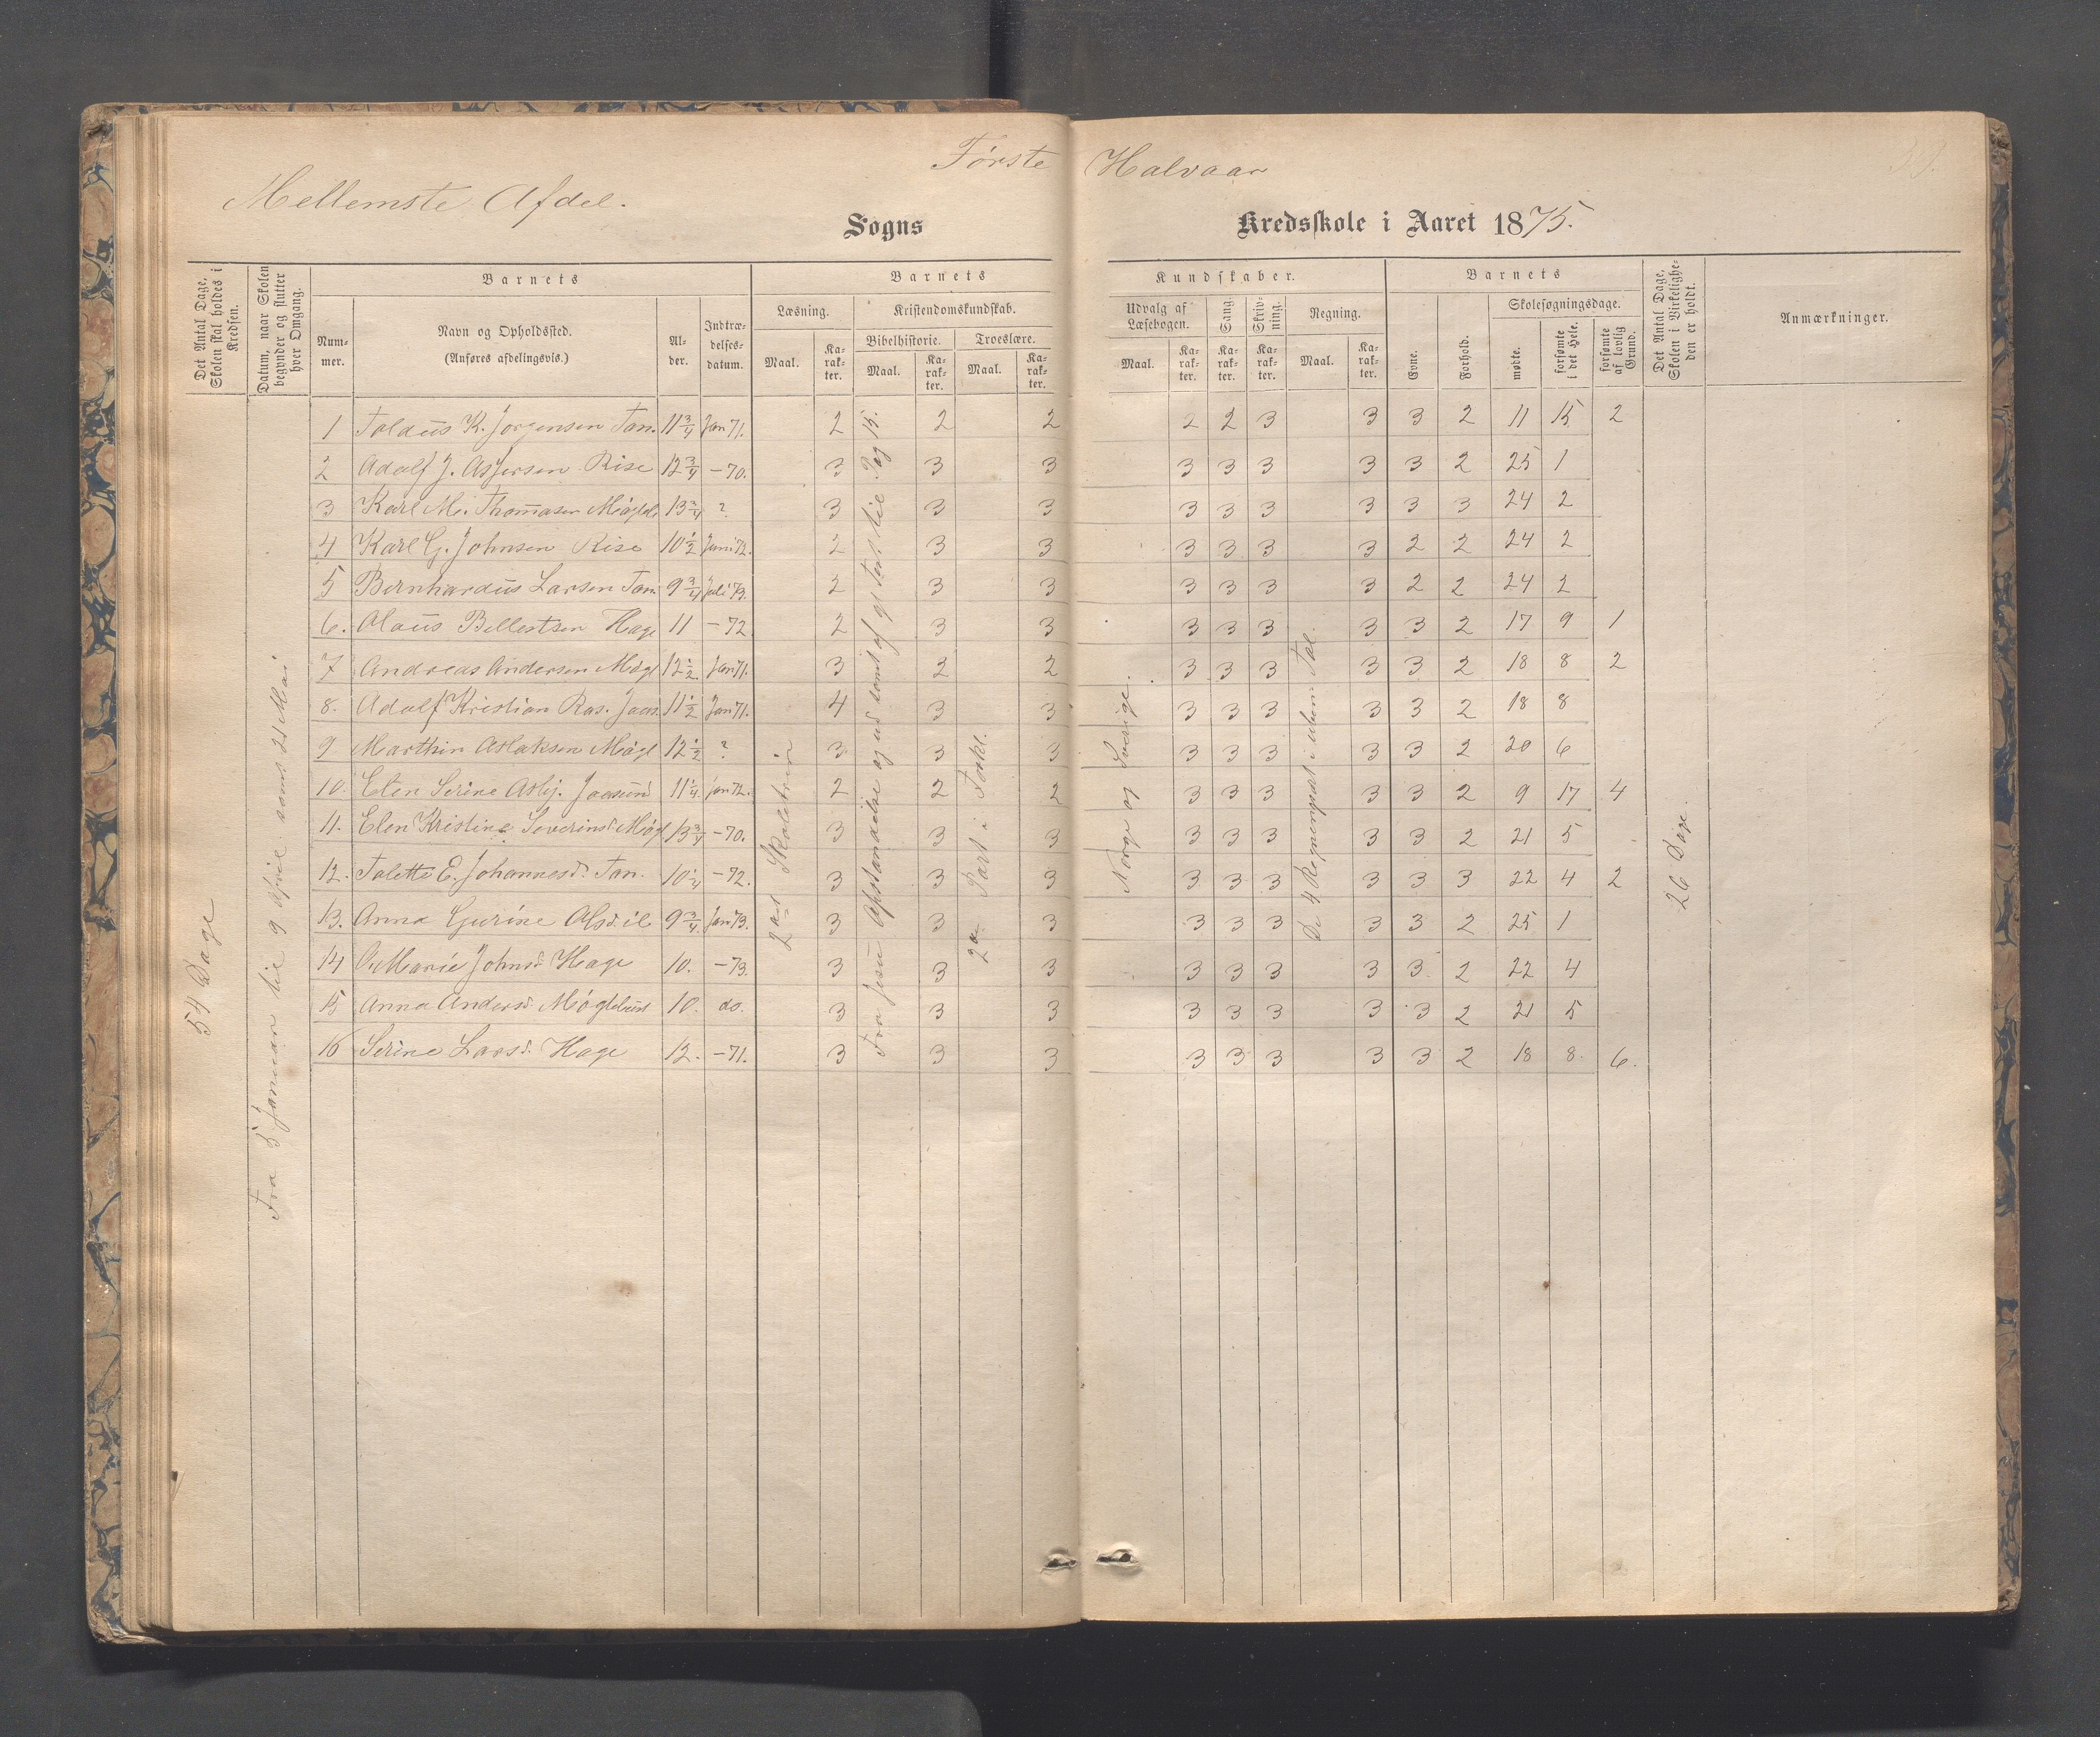 Første Halvaar
Mellemste Afdel.
Sogns Kredsskole i Aaret 1875.
Det Antal Dage, Skolen skal holdes i Kredsen.
Datum, naar Skolen begynder og slutter hver Omgang.
Barnets
Barnets
Kundskaber.
Barnets
Det Antal Dage, Skolen i Virkelighe-den er holdt.
Anmærkninger.
Num-mer.
Navn og Opholdssted.
(Anføres afdelingsvis.)
Al-der.
Indtræ-delses-datum.
Læsning.
Kristendomskundskab.
Bibelhistorie.
Troeslære.
Udvalg af Læsebogen.
Sang.
Skriv-ning.
Regning.
Evne.
Forhold.
Skolesøgningsdage.
Maal. Ka-rak-ter. Maal. Ka-rak-ter. Maal. Ka-rak-ter. Maal. Ka-rak-ter. Ka-rak-ter. Ka-rak-ter. Maal. Ka-rak-ter. mødte. forsømte i det Hele. forsømte af lovlig Grund.
54 Dage
Fra 5 Januar til 9 April samt 21 Mai
2det Skoletrin
Fra Jesu Opstandelse og ud samt af gl Test til Pag 15.
2den Part i Forkl.
Norge og Sverige.
De 4 Regningsart i ubenv Tal.
26 Dage.
1 Toldus K. Jørgensen Tan. 11 3/4 Jan 71. 2 2 2 2 2 3 3 3 2 11 15 2
2 Adolf J. Asjersen Rise 12 3/4 -70. 3 3 3 3 3 3 3 3 2 25 1
3 Karl M. Thomasen Møgleb 13 3/4 ? 3 3 3 3 3 3 3 3 3 24 2
4 Karl G. Johnsen Rise 10 1/2 Juni 72. 2 3 3 3 3 3 3 2 2 24 2
5 Bernhardus Larsen Tan 9 3/4 Juli 73. 2 3 3 3 3 3 3 2 2 24 2
6. Olaus Bellertsen Hage 11 -72 2 3 3 3 3 3 3 3 2 17 9 1
7 Andreas Andersen Møgl 12 1/2. Jan 71. 3 2 2 3 3 3 3 3 2 18 8 2
8. Adolf Kristian Ras. Jaas. 11 1/2 Jan 71. 4 3 3 3 3 3 3 3 2 18 8
9. Marthin Aslaksen Møgl 12 1/2 ? 3 3 3 3 3 3 3 3 2 20 6
10. Elen Serine Asbj. Jaasund 11 1/4. Jan 72. 2 2 2 3 3 3 3 3 2 9 17 4
11. Elen Kristine Severinsd. Møgl 13 3/4 -70. 3 3 3 3 3 3 3 3 2 21 5
12. Talette E. Johannesd. Tan. 10 1/4 -72. 3 3 3 3 3 3 3 3 3 22 4 2
13. Anna Gurine Olsd. il 9 3/4. Jan 73. 3 3 3 3 3 3 3 3 2 25 1
14 Marie Johnsd. Hage 10. -73. 3 3 3 3 3 3 3 3 2 22 4
15 Anna Andersd. Møglebust 10. do. 3 3 3 3 3 3 3 3 2 21 5
16 Serine Larsd. Hage 12. -71. 3 3 3 3 3 3 3 3 2 18 8. 6.